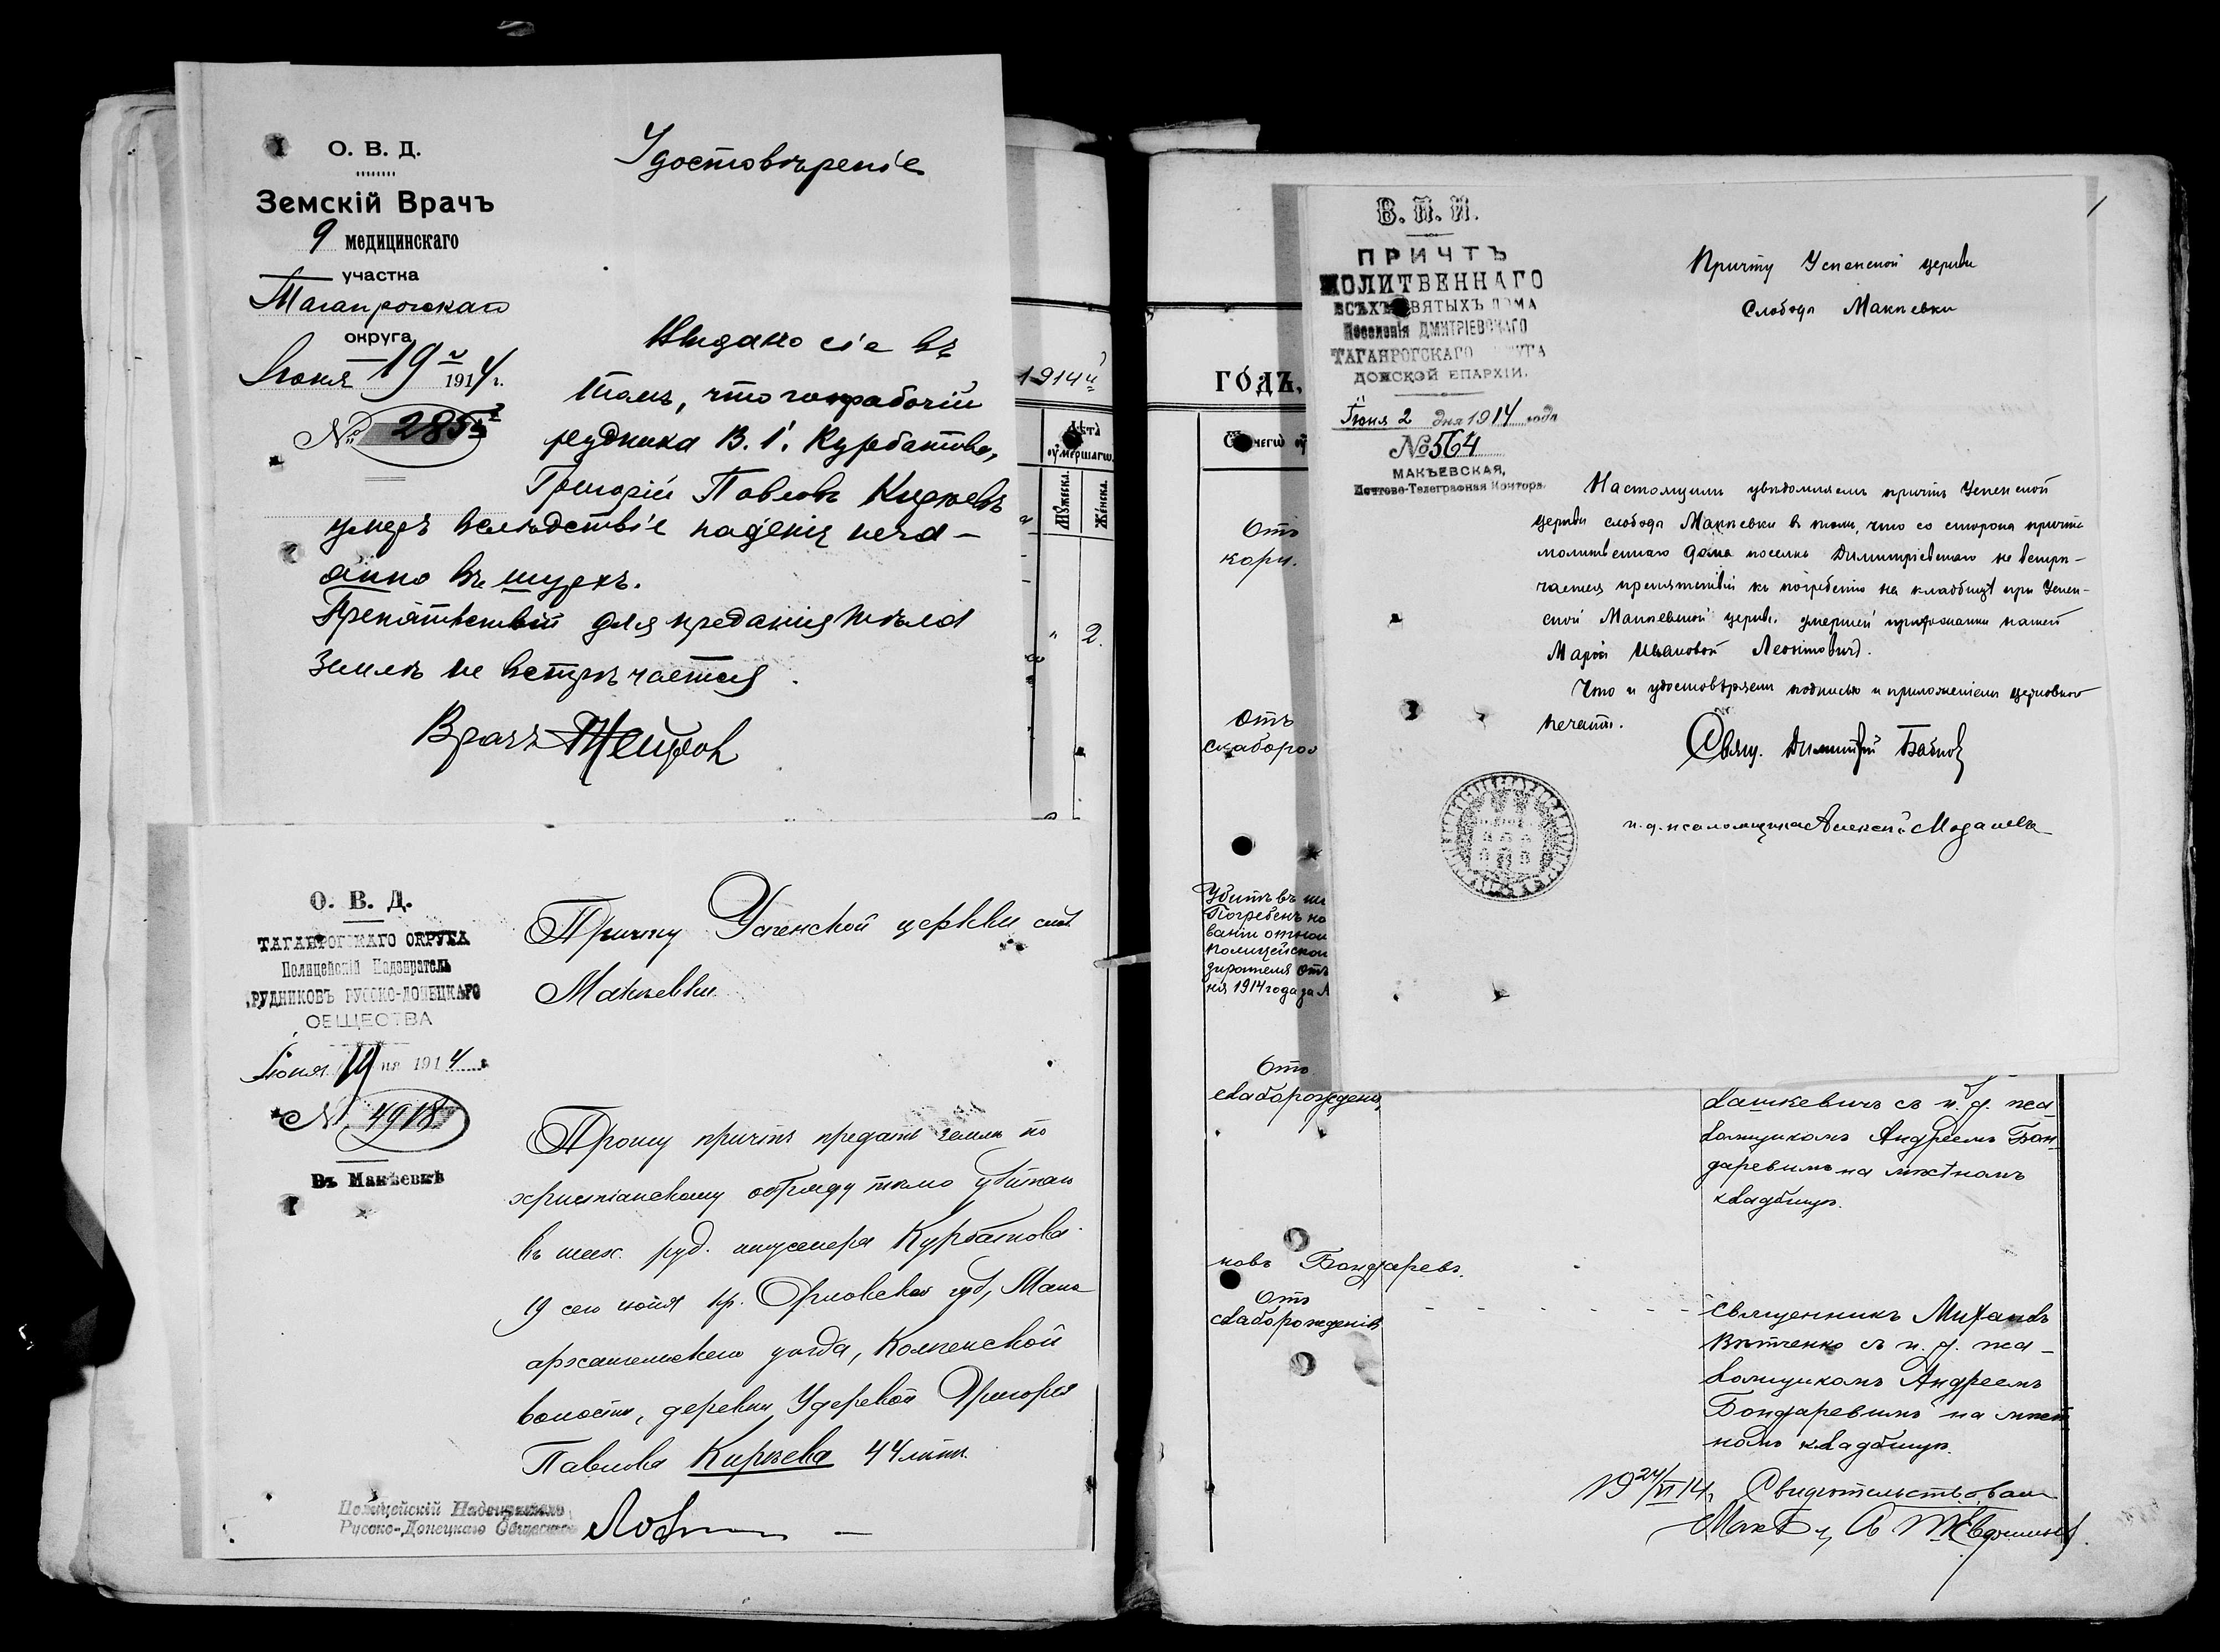 О. В. Д.
Земскій Врачъ
9 медицинскаго
участка
Таганрогскаго
округа
Іюня 19 1914 г.
№ 2852
Удостовѣреніе
Выдано сіе въ
томъ, что горнорабочій
рудника В. І. Курбатова,
Григорій Павловъ Кирѣевъ
умеръ вслѣдствіе паденія неча-
янно въ шурфъ.
Препятствій для преданія тѣла
землѣ не встрѣчается.
Врачъ
1914й
Лѣта
оумершагω.
Мꙋжеска.
Женска.
2.
О. В. Д.
ТАГАНРОГСКАГО ОКРУГА
Полицейскій Надзиратель
РУДНИКОВЪ РУССКО-ДОНЕЦКАГО
ОБЩЕСТВА
Іюня 19 дня 1914 г.
№ 4918
Въ Макѣевкѣ
Причту Успенской церкви слоб.
Макѣевки.
Прошу причтъ предать землѣ по
христіанскому обряду тѣло убитаго
въ шах. руд. инженера Курбатова
19 сего іюня кр. Орловской губ, Мало
архангельскаго уѣзда, Колпенской
волости, деревни Удеревой Григорія
Павлова Кирѣева 44 лѣтъ.
Полицейскій Надзиратель
Русско-Донецкаго Общества
ГОДЪ,
Ѿ чегω оу
Отъ
кори.
Отъ
слаборо
Убитъ въ ша
Погребенъ на
ваніи отнош
полицейскаго
зирателя отъ
ня 1914 года за №
Отъ
слаборожденія,
новъ Бондаревъ.
Отъ
слаборожденія,
В. П. И.
ПРИЧТЪ
МОЛИТВЕННАГО
ВСѢХЪ СВЯТЫХЪ ДОМА
Поселенія ДМИТРІЕВСКАГО
ТАГАНРОГСКАГО ОКРУГА
ДОНСКОЙ ЕПАРХІИ.
Іюня 2 дня 1914 года
№ 564
МАКѢЕВСКАЯ,
Почтово-Телеграфная Контора.
Причту Успенской церкви
Слободы Макѣевки
Настоящимъ увѣдомляемъ причтъ Успенской
церкви слободы Макѣевки въ томъ, что со стороны причта
молитвеннаго дома поселка Димитріевскаго не встрѣ-
чается препятствій къ погребенію на кладбищѣ при Успен-
ской Макѣевской церкви, умершей прихожанки нашей
Маріи Ивановой Леонтовичъ.
Что и удостовѣряемъ подписью и приложеніемъ церковной
печати.
Свящ. Димитрій
и. д. псаломщика Алексѣй
лашкевичъ съ и. д. пса
ломщикомъ Андреемъ Бон
даревымъ на мѣстномъ
кладбищѣ.
Священникъ Михаилъ
Вѣтченко съ и. д. пса-
ломщикомъ Андреемъ
Бондаревымъ на мѣст
номъ кладбищѣ.
19 24/VI 14 г. Свидѣтельствовалъ